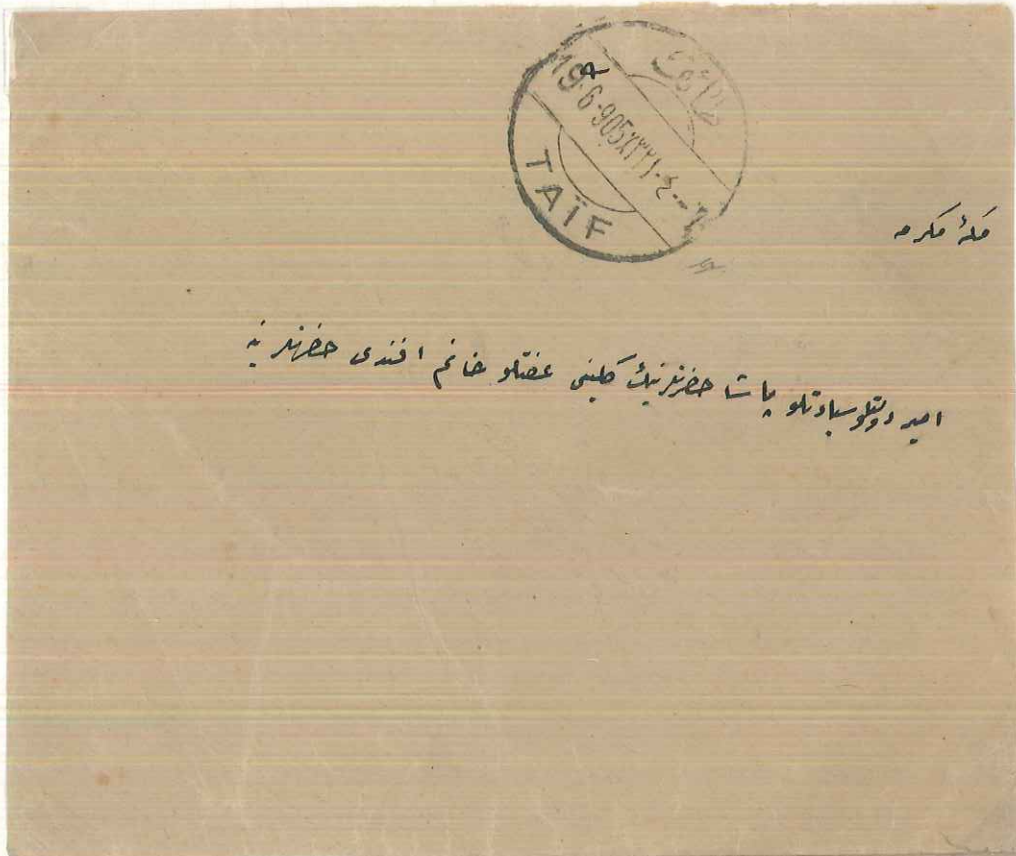 طائف
19-6-905 ٣٢١-٤-٦
TAÏF
مکهٔ مکرمه
امیر دولتلو سیادتلو پاشا حضرتلرینك کلینی عفتلو خانم افندی حضرتلرینه